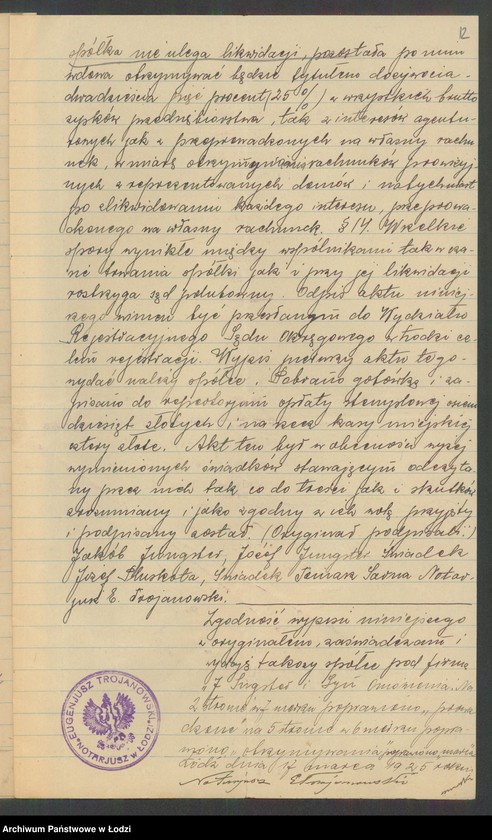 12
spółka nie ulega likwidacji, pozostała po nim
wdowa otrzymywać będzie tytułem dożywocia -
dwadzieścia pięć procent (25%) z wszystkich brutto
zysków przedsiębiorstwa, tak z interesów agentu-
rowych jak z przeprowadzonych na własny rachu-
nek, w miarę otrzymywania rachunków prowizyj-
nych z reprezentowanych domów i natychmiast
po zlikwidowaniu każdego interesu, przeprowa-
dzonego na własny rachunek. § 14. Wszelkie
spory wynikłe między wspólnikami tak w cza-
sie trwania spółki jak i przy jej likwidacji
rozstrzyga sąd polubowny. Odpis aktu niniej-
szego winien być przesłanym do Wydziału
Rejestracyjnego Sądu Okręgowego w Łodzi ce-
lem rejestracji. Wypis pierwszy aktu tego -
wydać należy spółce. Pobrano gotówką i za-
pisano do repertorjum opłaty stemplowej osiem-
dziesiąt złotych i na rzecz kasy miejskiej
cztery złote. Akt ten był w obecności wyżej
wymienionych świadków stawającym odczyta-
ny przez nich tak co do treści jak i skutków
zrozumiany i jako zgodny z ich wolą przyjęty
i podpisany został. (Oryginał podpisali:)
Jakób Jungster, Józef Jungster Świadek
Józef Pluskota, Świadek Tomasz Sadna Notar-
jusz E. Trojanowski.
Zgodność wypisu niniejszego
z oryginałem, zaświadczam i
wydaję takowy spółce pod firmą
"J. Jungster i Syn
2 stronie w wierszu poprawiono "prowa-
dzone" na 5 stronie w 6 wierszu popra-
wiono "otrzymywania"
Łódź dnia 17 marca 1925 roku.
Notarjusz ETrojanowski
EUGENJUSZ TROJANOWSKI
NOTARJUSZ W ŁODZI
Archiwum Państwowe w Łodzi